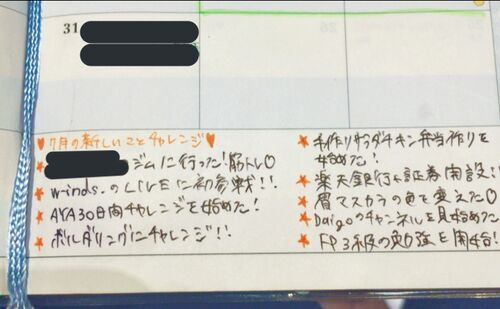 31
26
♥7月の新しいことチャレンジ♥
★ ジムに行った!筋トレ♡
★winds.のLIVEに初参戦!!
★AYA30日間チャレンジを始めた!
★ボルダリングにチャレンジ!!
★手作りサラダチキン弁当作りを
始めた!
★楽天銀行&証券開設!!
★眉マスカラの色を変えた♡
★Daigoのチャンネルを見始めた!
★FP3級の勉強を開始!